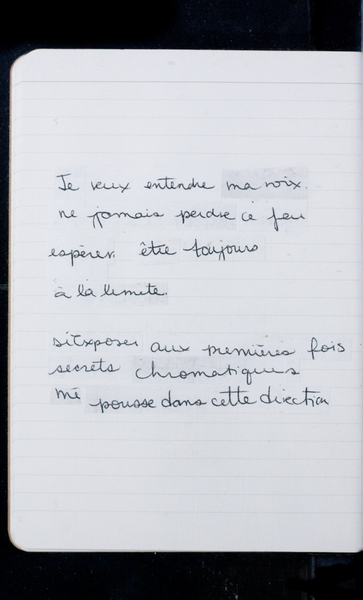 Je veux entendre ma voix.
ne jamais perdre ce feu
espérer. être toujours
à la limite.
s'Exposer aux premières fois
secrets chromatiques
me pousse dans cette direction